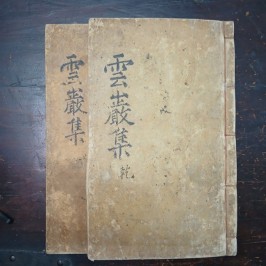 雲巖集
乾
雲巖集